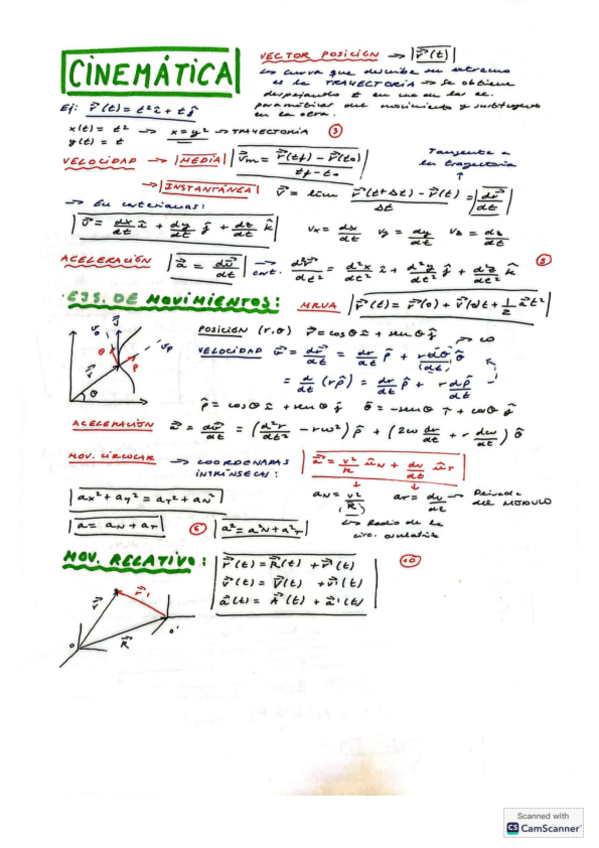 CINEMÁTICA
VECTOR POSICIÓN → |r⃗(t)|
↳ Curva que describe su extremo
es la TRAYECTORIA → Se obtiene
despejando t en una de las ec.
paramétricas del movimiento y sustituyendo
en la otra.
Ej: r⃗(t) = t² î + t ĵ
x(t) = t² → x = y² → TRAYECTORIA (3)
y(t) = t
VELOCIDAD → |MEDIA| v⃗m = (r⃗(tf) - r⃗(t0)) / (tf - t0)
Tangente a
la trayectoria
→ |INSTANTÁNEA| v⃗ = lim (r⃗(t+Δt) - r⃗(t)) / Δt = dr⃗/dt
→ En cartesianas:
v⃗ = dx/dt î + dy/dt ĵ + dz/dt k̂ vx = dx/dt vy = dy/dt vz = dz/dt
ACELERACIÓN a⃗ = dv⃗/dt → cart. d²r⃗/dt² = d²x/dt² î + d²y/dt² ĵ + d²z/dt² k̂
EJS. DE MOVIMIENTOS: MRUA r⃗(t) = r⃗(0) + v⃗(0)t + 1/2 a⃗t²
POSICIÓN (r,θ) r⃗ = cosθ î + senθ ĵ
→ ω
VELOCIDAD v⃗ = dr⃗/dt = dr/dt ρ̂ + r dθ/dt θ̂
= d/dt (rρ̂) = dr/dt ρ̂ + r dρ̂/dt
ρ̂ = cosθ î + senθ ĵ θ̂ = -senθ î + cosθ ĵ
ACELERACIÓN a⃗ = dv⃗/dt = (d²r/dt² - rω²) ρ̂ + (2ω dr/dt + r dω/dt) θ̂
MOV. CIRCULAR → COORDENADAS
INTRÍNSECAS: a⃗ = v²/R ûN + dv/dt ûT
ax² + ay² = aT² + aN² aN = v²/R aT = dv/dt → Derivada
del MÓDULO
↳ Radio de la
circ. osculatriz
a = aN + aT (6) a² = a²N + a²T
MOV. RELATIVO: r⃗(t) = R⃗(t) + r⃗'(t) (10)
v⃗(t) = V⃗(t) + v⃗'(t)
a⃗(t) = A⃗(t) + a⃗'(t)
r⃗ r⃗' R⃗ O O'
Scanned with
CS CamScanner